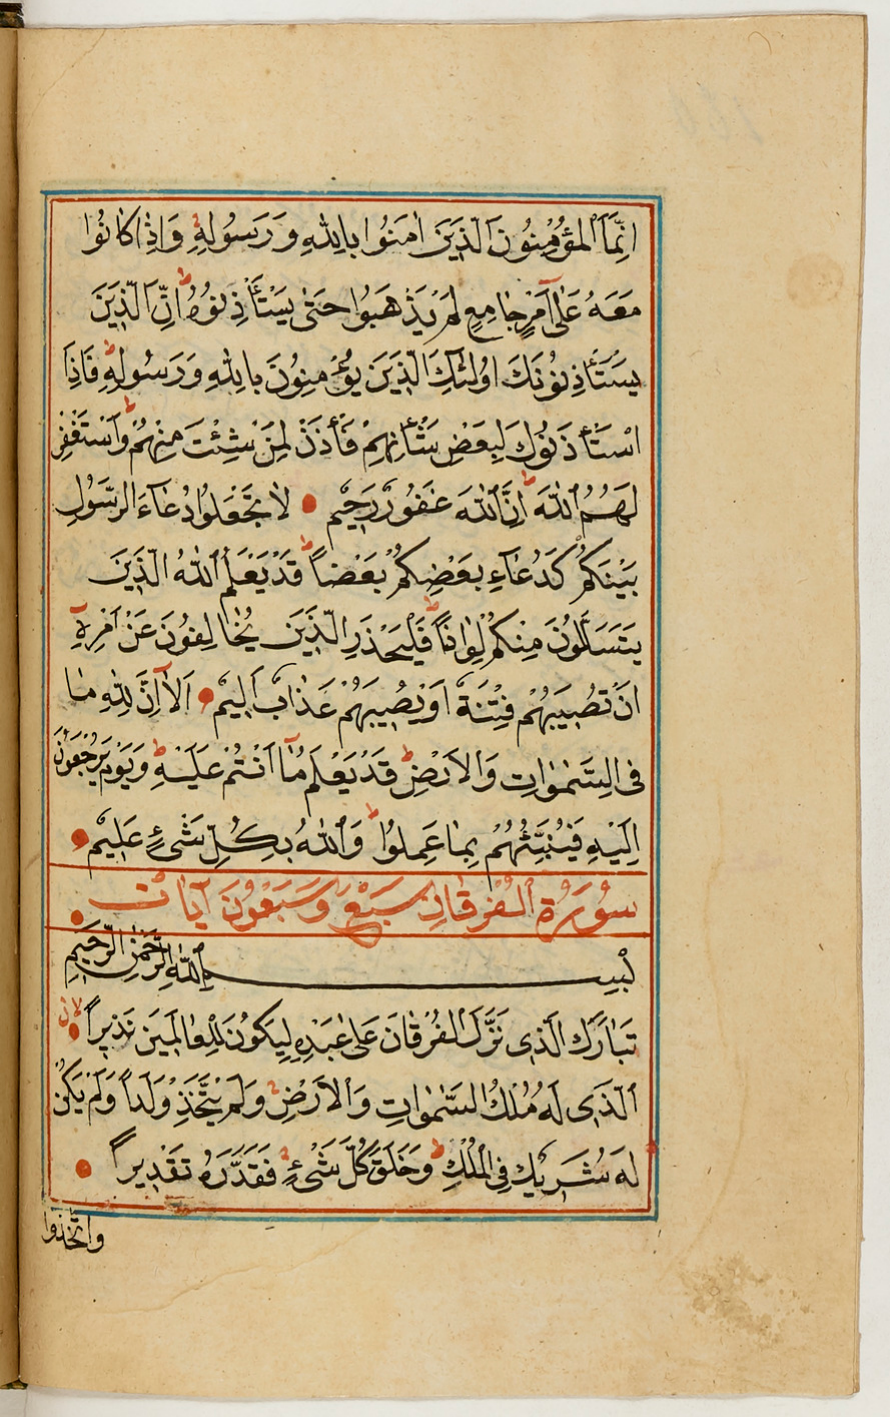 اِنَّمَا الْمُؤْمِنُونَ الَّذِينَ اٰمَنُوا بِاللّٰهِ وَرَسُولِهِ وَاِذَا كَانُوا
مَعَهُ عَلٰى اَمْرٍ جَامِعٍ لَمْ يَذْهَبُوا حَتّٰى يَسْتَأْذِنُوهُ اِنَّ الَّذِينَ
يَسْتَأْذِنُونَكَ اُولٰئِكَ الَّذِينَ يُؤْمِنُونَ بِاللّٰهِ وَرَسُولِهِ فَاِذَا
اسْتَأْذَنُوكَ لِبَعْضِ شَأْنِهِمْ فَأْذَنْ لِمَنْ شِئْتَ مِنْهُمْ وَاسْتَغْفِرْ
لَهُمُ اللّٰهَ اِنَّ اللّٰهَ غَفُورٌ رَحِيمٌ لَا تَجْعَلُوا دُعَاءَ الرَّسُولِ
بَيْنَكُمْ كَدُعَاءِ بَعْضِكُمْ بَعْضاً قَدْ يَعْلَمُ اللّٰهُ الَّذِينَ
يَتَسَلَّلُونَ مِنْكُمْ لِوَاذاً فَلْيَحْذَرِ الَّذِينَ يُخَالِفُونَ عَنْ اَمْرِهِ
اَنْ تُصِيبَهُمْ فِتْنَةٌ اَوْ يُصِيبَهُمْ عَذَابٌ اَلِيمٌ اَلَا اِنَّ لِلّٰهِ مَا
فِى السَّمٰوَاتِ وَالْاَرْضِ قَدْ يَعْلَمُ مَا اَنْتُمْ عَلَيْهِ وَيَوْمَ يُرْجَعُونَ
اِلَيْهِ فَيُنَبِّئُهُمْ بِمَا عَمِلُوا وَاللّٰهُ بِكُلِّ شَىْءٍ عَلِيمٌ
سُورَةُ الْفُرْقَانِ سَبْعٌ وَسَبْعُونَ آيَاتٌ
بِسْمِ اللّٰهِ الرَّحْمٰنِ الرَّحِيمِ
تَبَارَكَ الَّذِى نَزَّلَ الْفُرْقَانَ عَلٰى عَبْدِهِ لِيَكُونَ لِلْعَالَمِينَ نَذِيراً
اَلَّذِى لَهُ مُلْكُ السَّمٰوَاتِ وَالْاَرْضِ وَلَمْ يَتَّخِذْ وَلَداً وَلَمْ يَكُنْ
لَهُ شَرِيكٌ فِى الْمُلْكِ وَخَلَقَ كُلَّ شَىْءٍ فَقَدَّرَهُ تَقْدِيراً
وَاتَّخَذُوا